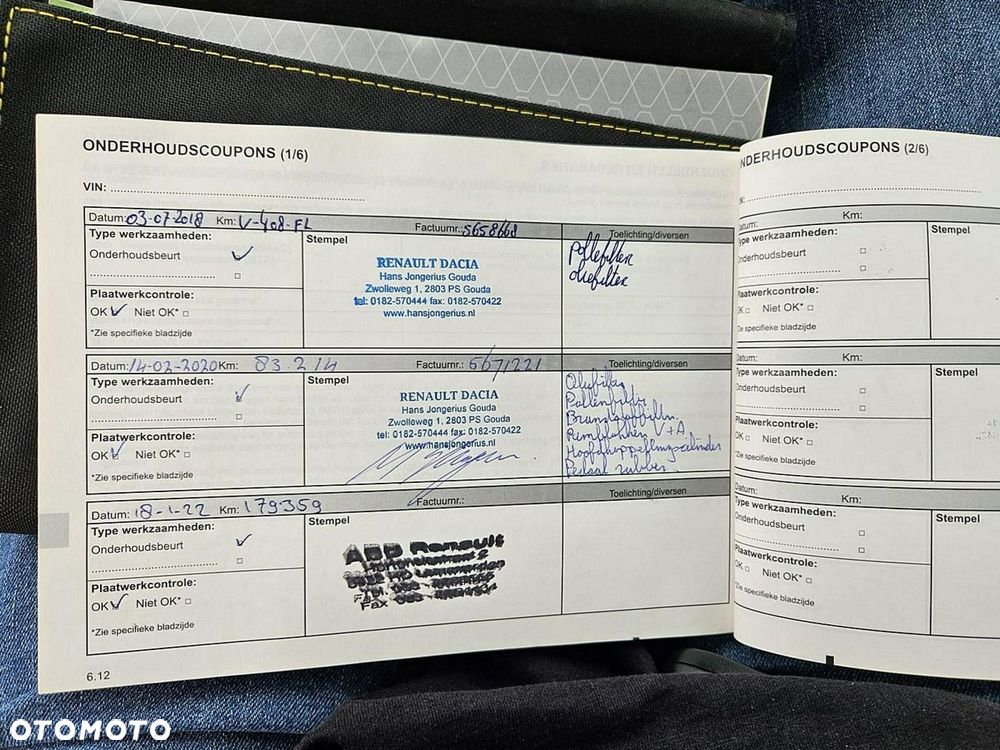 ONDERHOUDSCOUPONS (1/6)
VIN:
Datum: 03-07-2018 Km: V-408-FL Factuurnr.: 5658668
Type werkzaamheden:
Stempel
Toelichting/diversen
Onderhoudsbeurt
Plaatwerkcontrole:
OK Niet OK*
*Zie specifieke bladzijde
RENAULT DACIA
Hans Jongerius Gouda
Zwolleweg 1, 2803 PS Gouda
tel: 0182-570444 fax: 0182-570422
www.hansjongerius.nl
Pollefilter
oliefilter
Datum: 14-02-2020 Km: 83.214 Factuurnr.: 5671221
Type werkzaamheden:
Stempel
Toelichting/diversen
Onderhoudsbeurt
Plaatwerkcontrole:
OK Niet OK*
*Zie specifieke bladzijde
RENAULT DACIA
Hans Jongerius Gouda
Zwolleweg 1, 2803 PS Gouda
tel: 0182-570444 fax: 0182-570422
www.hansjongerius.nl
Oliefilter
Pollenfilter
Brandstoffilter
Remblokken V+A
Hoofdkoppelingscilinder
Pedaal rubber
Datum: 18-1-22 Km: 179359 Factuurnr.:
Type werkzaamheden:
Stempel
Toelichting/diversen
Onderhoudsbeurt
Plaatwerkcontrole:
OK Niet OK*
*Zie specifieke bladzijde
ABD Renault
Fax
6.12
NDERHOUDSCOUPONS (2/6)
N:
Datum: Km:
ype werkzaamheden:
Stempel
Onderhoudsbeurt
Plaatwerkcontrole:
OK Niet OK*
*Zie specifieke bladzijde
Datum: Km:
Type werkzaamheden:
Stempel
Onderhoudsbeurt
Plaatwerkcontrole:
OK Niet OK*
*Zie specifieke bladzijde
Datum: Km:
Type werkzaamheden:
Stempel
Onderhoudsbeurt
Plaatwerkcontrole:
OK Niet OK*
*Zie specifieke bladzijde
OTOMOTO